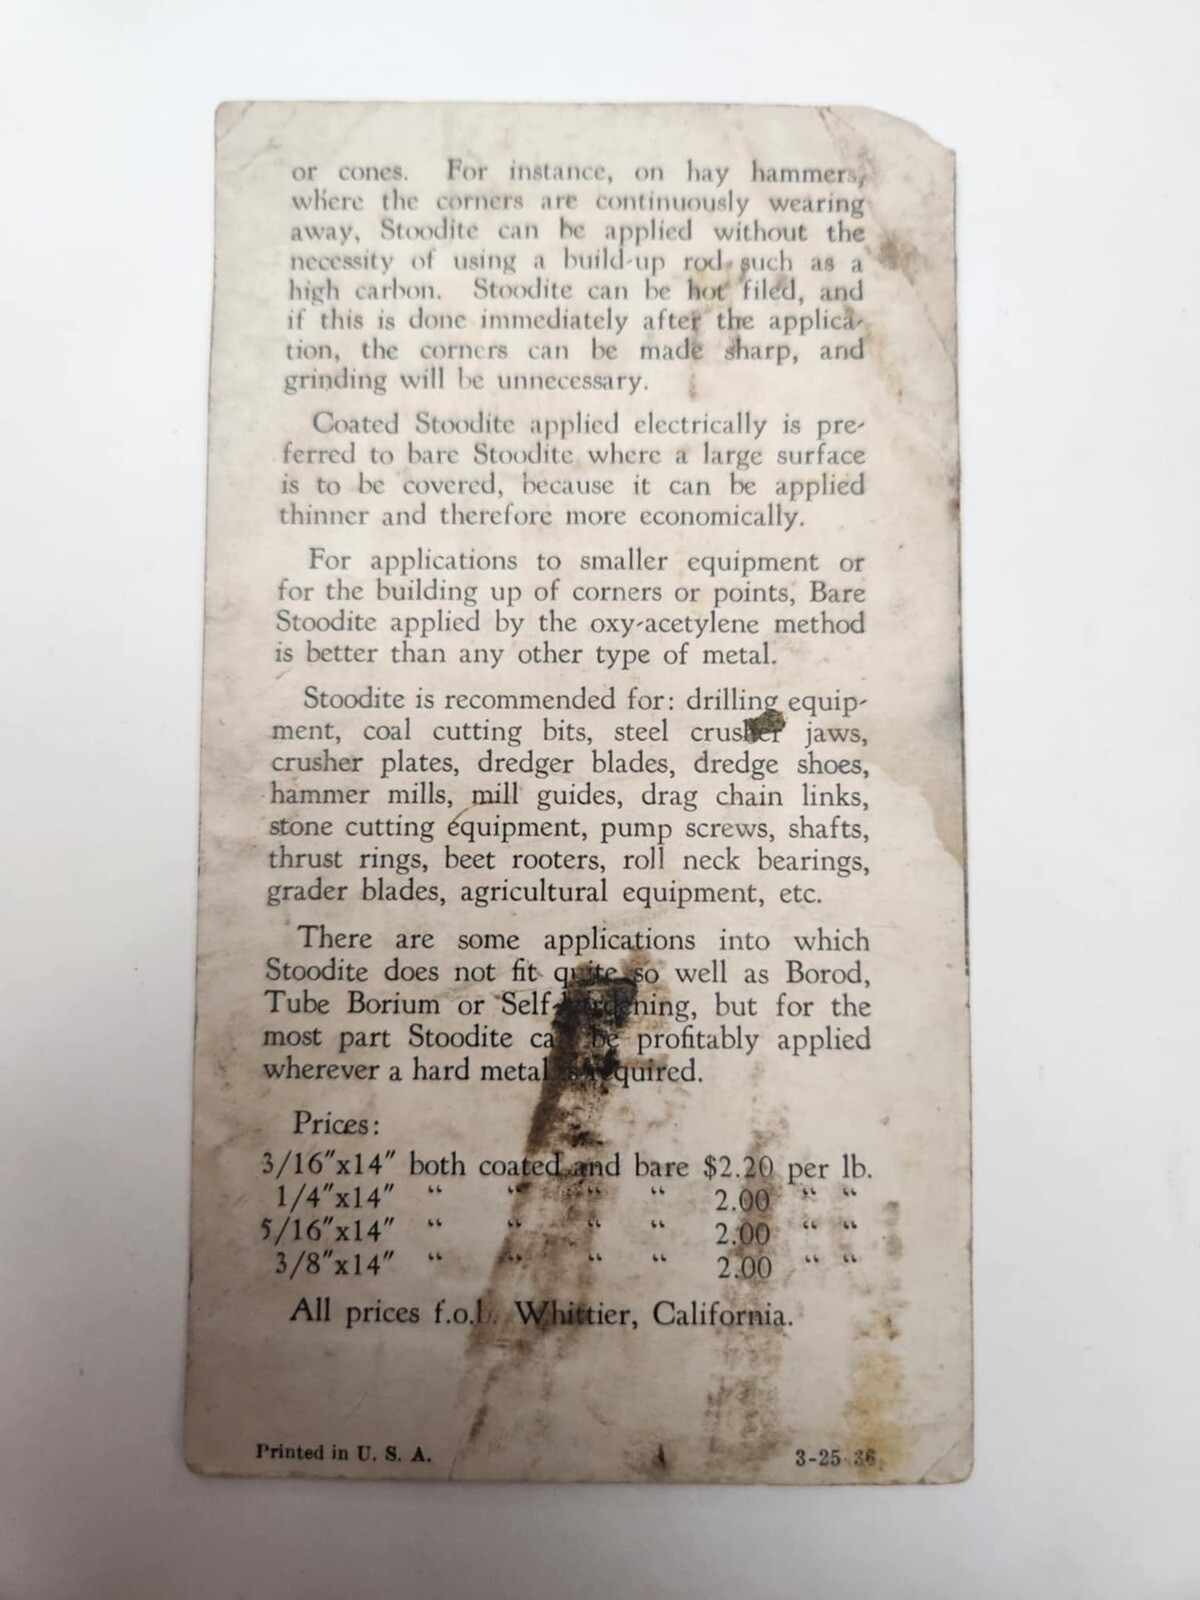 or cones. For instance, on hay hammers,
where the corners are continuously wearing
away, Stoodite can be applied without the
necessity of using a build-up rod such as a
high carbon. Stoodite can be hot filed, and
if this is done immediately after the applica-
tion, the corners can be made sharp, and
grinding will be unnecessary.
Coated Stoodite applied electrically is pre-
ferred to bare Stoodite where a large surface
is to be covered, because it can be applied
thinner and therefore more economically.
For applications to smaller equipment or
for the building up of corners or points, Bare
Stoodite applied by the oxy-acetylene method
is better than any other type of metal.
Stoodite is recommended for: drilling equip-
ment, coal cutting bits, steel crusher jaws,
crusher plates, dredger blades, dredge shoes,
hammer mills, mill guides, drag chain links,
stone cutting equipment, pump screws, shafts,
thrust rings, beet rooters, roll neck bearings,
grader blades, agricultural equipment, etc.
There are some applications into which
Stoodite does not fit quite so well as Borod,
Tube Borium or Self-hardening, but for the
most part Stoodite can be profitably applied
wherever a hard metal is required.
Prices:
3/16"x14" both coated and bare $2.20 per lb.
1/4"x14" “ “ “ “ 2.00 “ “
5/16"x14" “ “ “ “ 2.00 “ “
3/8"x14" “ “ “ “ 2.00 “ “
All prices f.o.b. Whittier, California.
Printed in U. S. A. 3-25-36